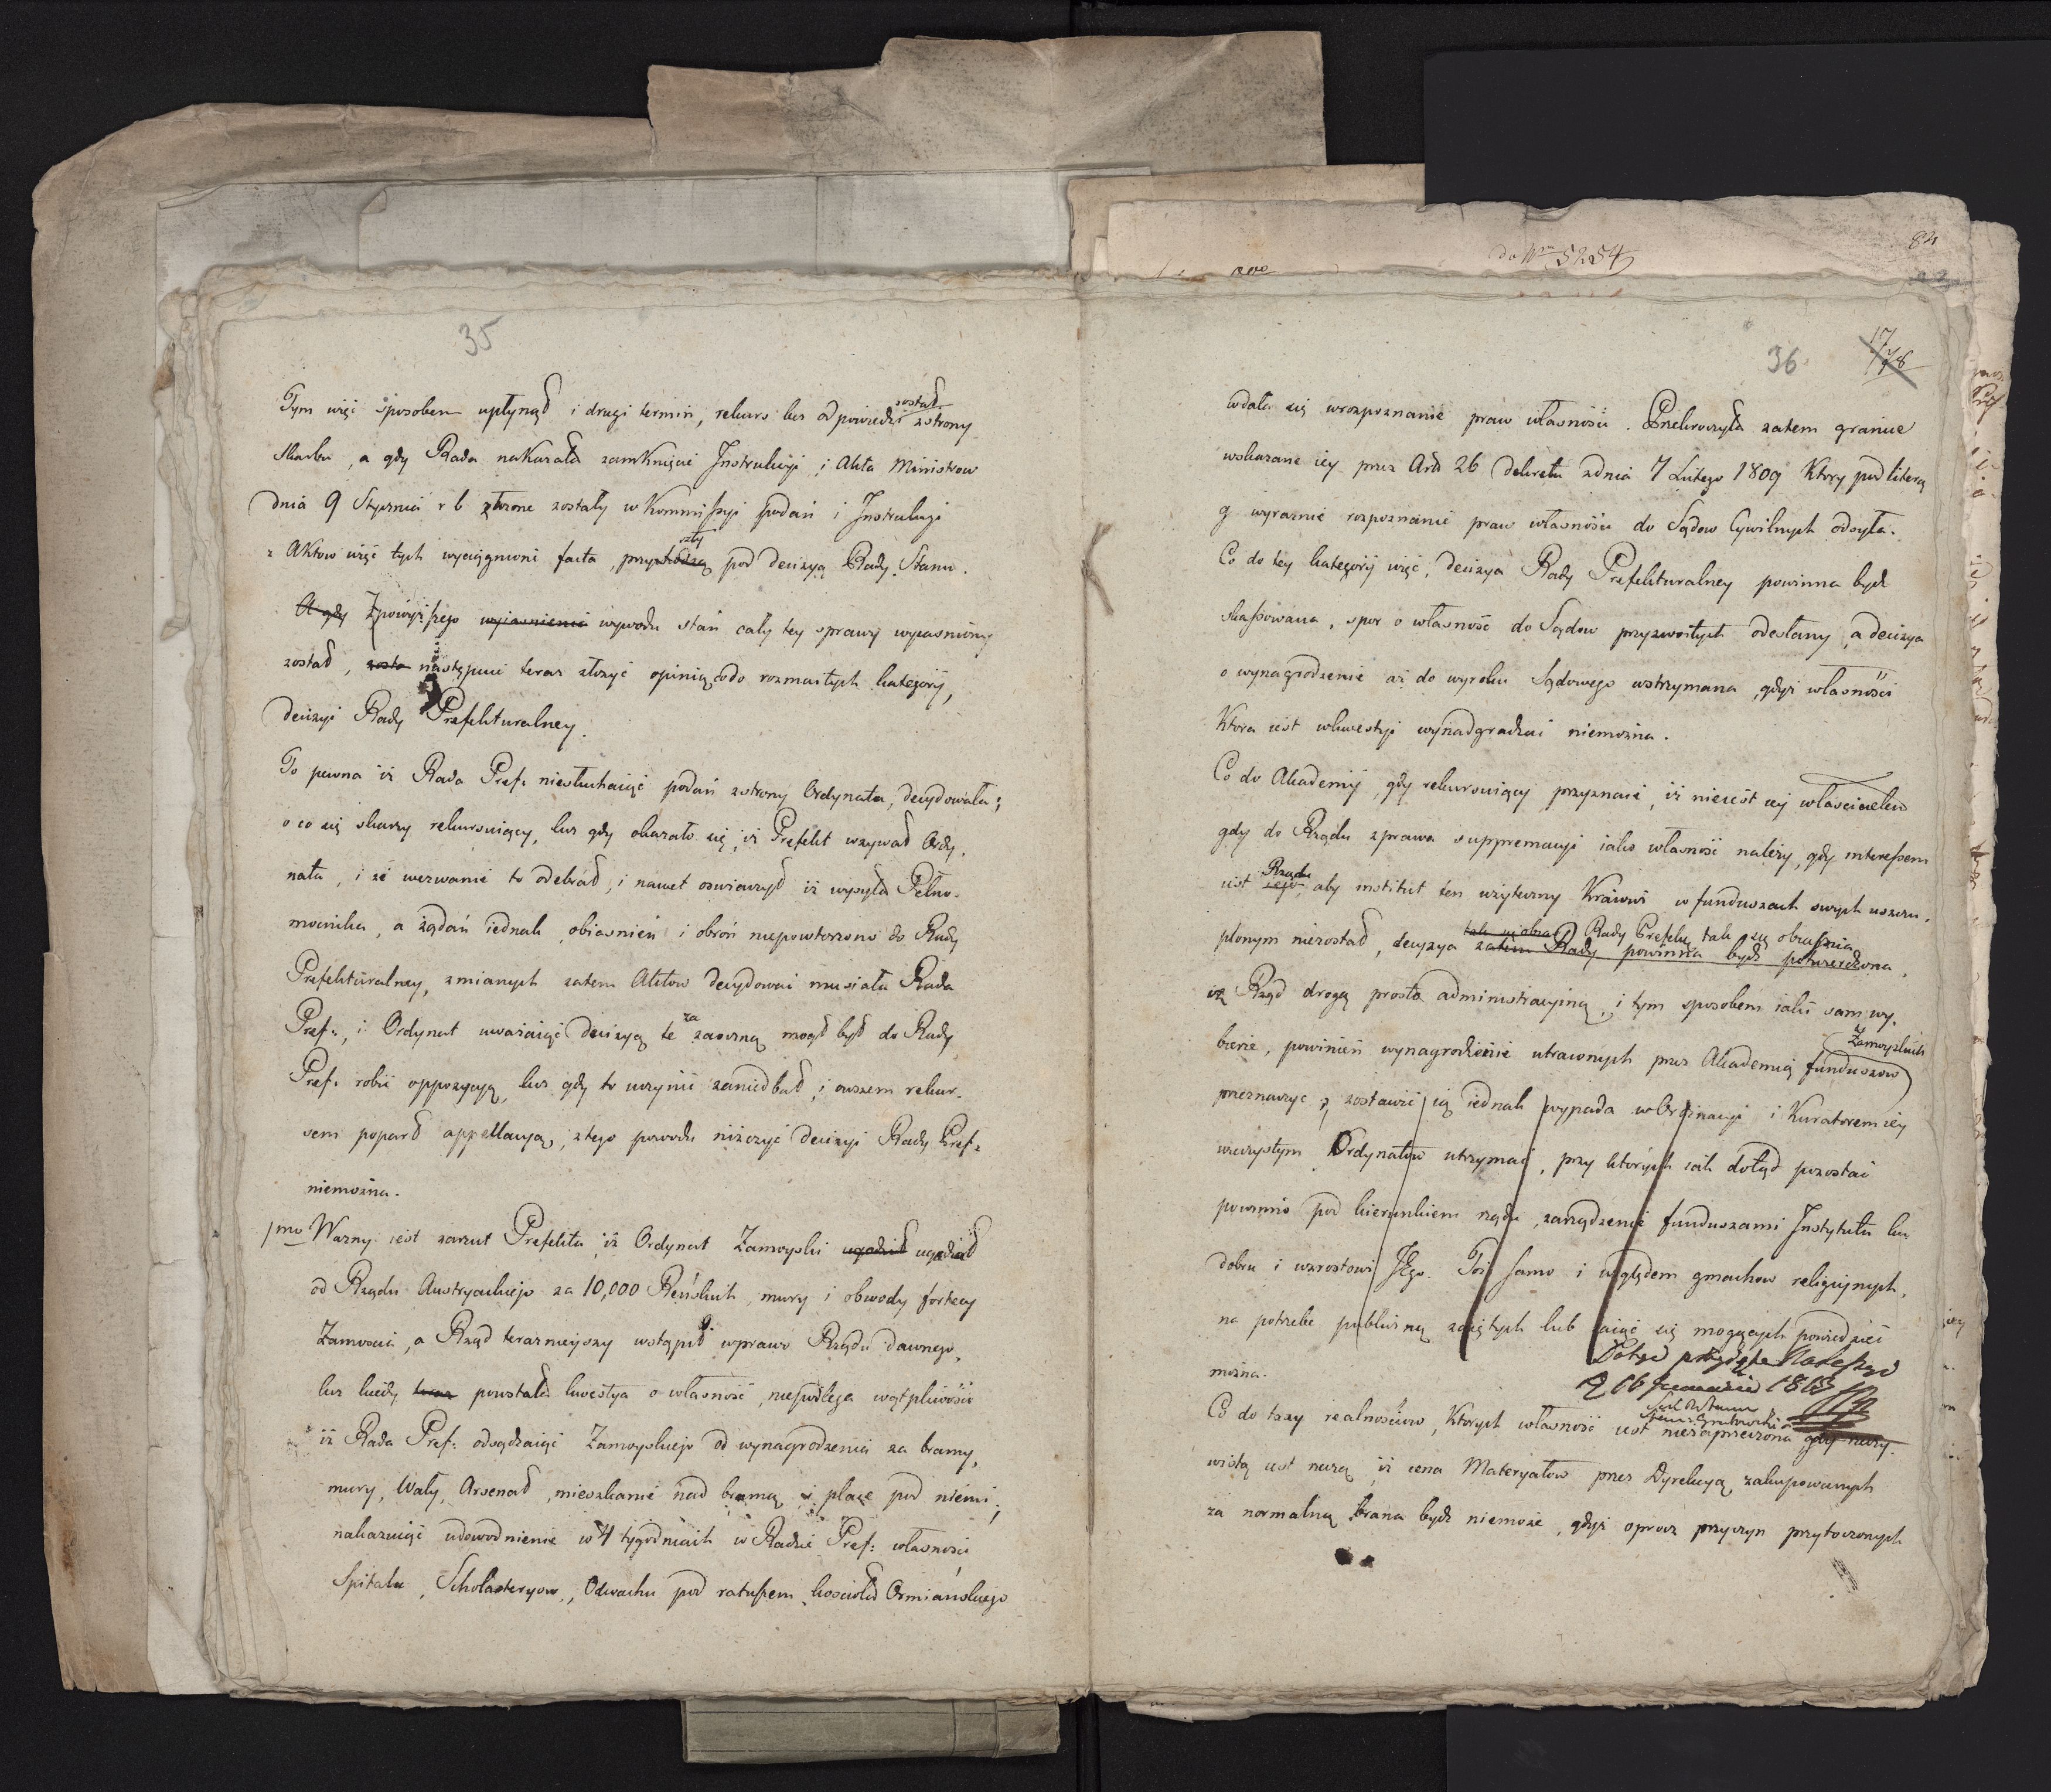 35
Tym więc sposobem upłynął i drugi termin, rekurs bez odpowiedzi został zstrony
Skarbu, a gdy Rada nakazała zamknięcie Instrukcyi i Akta Ministrow
dnia 9 Stycznia r b złożone zostały w Kommissyi podań i Instrukcyi
z Aktow więc tych wyciągnione facta, przyszły pod decyzyą Rady Stanu.
A gdy Zpowyższego wyiasnienia wywodu stan cały tey sprawy wyiasniony
został, następuie teraz złożyć opinią codo rozmaitych kategoryi,
decyzyi Rady Prefekturalney.
To pewna iż Rada Pref: niesłuchaiąc podań zstrony Ordynata, decydowała;
o co się skarzy rekursuiący, lecz gdy okazało się, iż Prefekt wzywał Ordy,
nata, i że wezwanie to odebrał, i nawet oswiadczył iż wysyła Pełno-
mocnika, a żądań iednak obiasnień i obrón niepowtorzono do Rady
Prefekturalney, zmianych zatem Aktow decydować musiała Rada
Pref:, i Ordynat uważaiąc decyzyą te za zaoczną mogł był do Rady
Pref: robić oppozycyą, lecz gdy to uczynić zaniedbał, i owszem rekur-
sem poparł appellacyą, ztego powodu niszczyć decyzyi Rady Pref:
niemożna.
1mo Wazny iest zarzut Prefekta iż Ordynat Zamoyski ugodził ugodził
od Rządu Austryackiego za 10,000 Reńskich, mury i obwody fortecy
Zamoscia, a Rząd teraznieyszy wstąpił wprawo Rządu dawnego,
lecz kiedy powstała kwestya o własność, niepodlega wątpliwości
iż Rada Pref: odsądzaiąc Zamoyskiego od wynagrodzenia za bramy,
mury, Wały, Arsenał, mieszkanie nad bramą, i place pod niemi;
nakazuiąc udowodnienie w 4 tygodniach w Radzie Pref: własnosci
Spitalu, Scholasteryow, Odwachu pod ratuszem, kosciołа Ormiańskiego
do Nru 5254
84
36
wdała się wrozpoznanie praw własności. Przekroczyła zatem granice
wskazane iey przez Art 26 dekretu zdnia 7 Lutego 1809 Ktory pod literą
g wyraznie rozpoznanie praw własności do Sądow Cywilnych odsyła.
Co do tey kategoryi więc, decyzya Rady Prefekturalney powinna bydz
skassowana, spor o własność do Sądow przyzwoitych odesłany, a decyzya
o wynagrodzenie aż do wyroku Sądowego wstrzymana, gdyż własności
Ktora iest wkwestyi wynadgradzać niemożna.
Co do Akademij, gdy rekursuiący przyznaie, iż nieiest iey właścicielem
gdy do Rządu zprawa suppremacyi iako własność należy, gdy interessem
iest Rządu iego aby institut ten użyteczny Kraiowi w funduszach swych uszczu,
plonym niezostał, decyzya Rady Prefekt tak się obiasnia
zatem Rady powinna bydz potwierdzona,
iż Rząd drogą prosto administracyiną, i tym sposobem iaki sam wy,
bierze, powinien wynagrodzenie utraconych przez Akademią funduszow Zamoyskich
przeznaczyć, zostawić ią iednak wypada w Ordinacyi i Kuratorem iey
wieczystym Ordynatow utrzymać, przy których iak dotąd pozostać
powinno pod kierunkiem rządu zarządzenie funduszami Instytutu ku
dobru i wzrostowi Jego. Toż samo i względem gmachow religiynych,
na potrzebe publiczną zaiętych lub zaiąć się mogących powiedzieć
można.
Co do trzy realnościow, Ktorych własność iest niezaprzeczona gdy rzeczy-
wistą iest rzeczą iż cena Materyałow przez Dyrekcyą zakupowanych
za normalną brana bydz niemoże, gdyż oprocz przyczyn przytoczonych